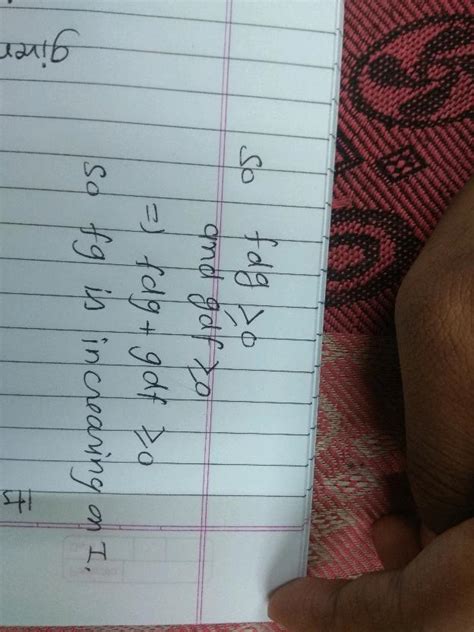 given
so fdg ≥0
and gdf ≥0
=) fdg + gdf ≥0
so fg in increasing on I.